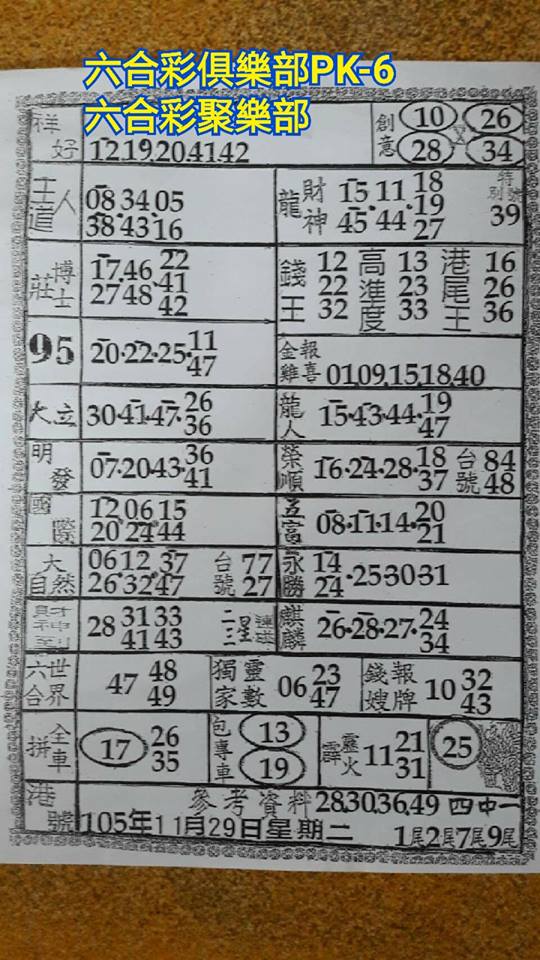 六合彩俱樂部PK-6
六合彩聚樂部
祥好 12.19.20.41.42
創意 10 26 28 34
王道人 08 34 05 38 43 16
龍財神 15 11 18 19 45 44 27 特別號 39
莊博士 17.46 22 41 27 48 42
錢王 12 22 32 高準度 13 23 33 港尾王 16 26 36
95 20.22.25. 11 47
金雞報喜 01,09,15,18,40
大立 30.41.47. 26 36
龍人 15.43.44. 19 47
明發 07.20.43. 36 41
榮順 16.24.28. 18 37 台號 84 48
國際 12 06 15 20 24 44
五富 08.11.14. 20 21
大自然 06 12 37 26 32 47 台號 77 27
永勝 14 24 .25.30.31
財神到 28 31 33 41 43 二三星連碰
麒麟 26.28.27. 24 34
六合世界 47 48 49
獨家靈數 06 23 47
錢嫂報牌 10 32 43
拼全車 17 26 35
包專車 13 19
霹靈火 11 21 31
25
港號 參考資料 28,30,36,49 四中一
105年11月29日星期二 1尾2尾7尾9尾